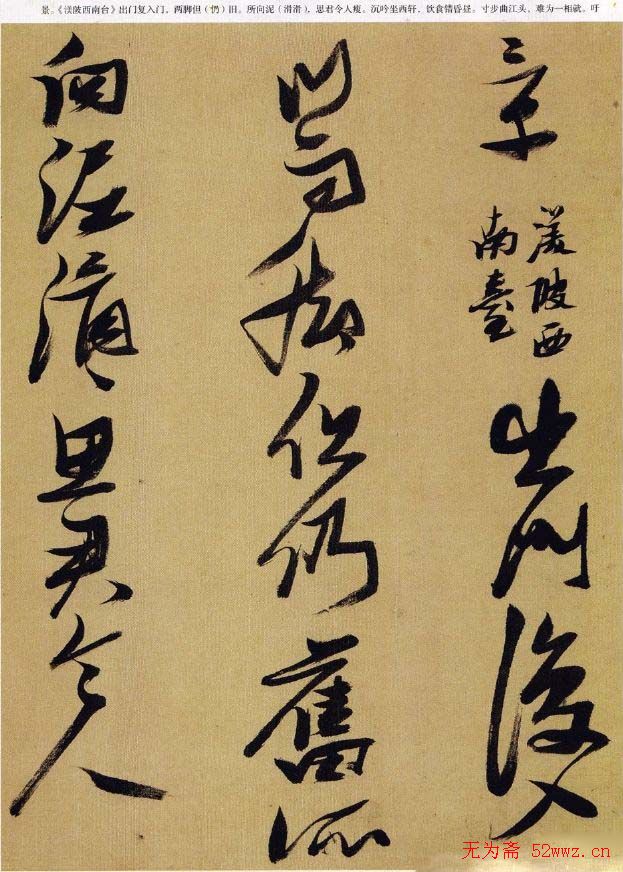 景。《渼陂西南台》出门复入门，两脚但（仍）旧。所向泥（滑滑），思君令人瘦。沉吟坐西轩，饮食错昏昼。寸步曲江头，难为一相就。吁
章
渼陂西
南臺
出門復入
門兩脚但仍舊所
向泥滑〻思君令人
无为斋 52wwz.cn